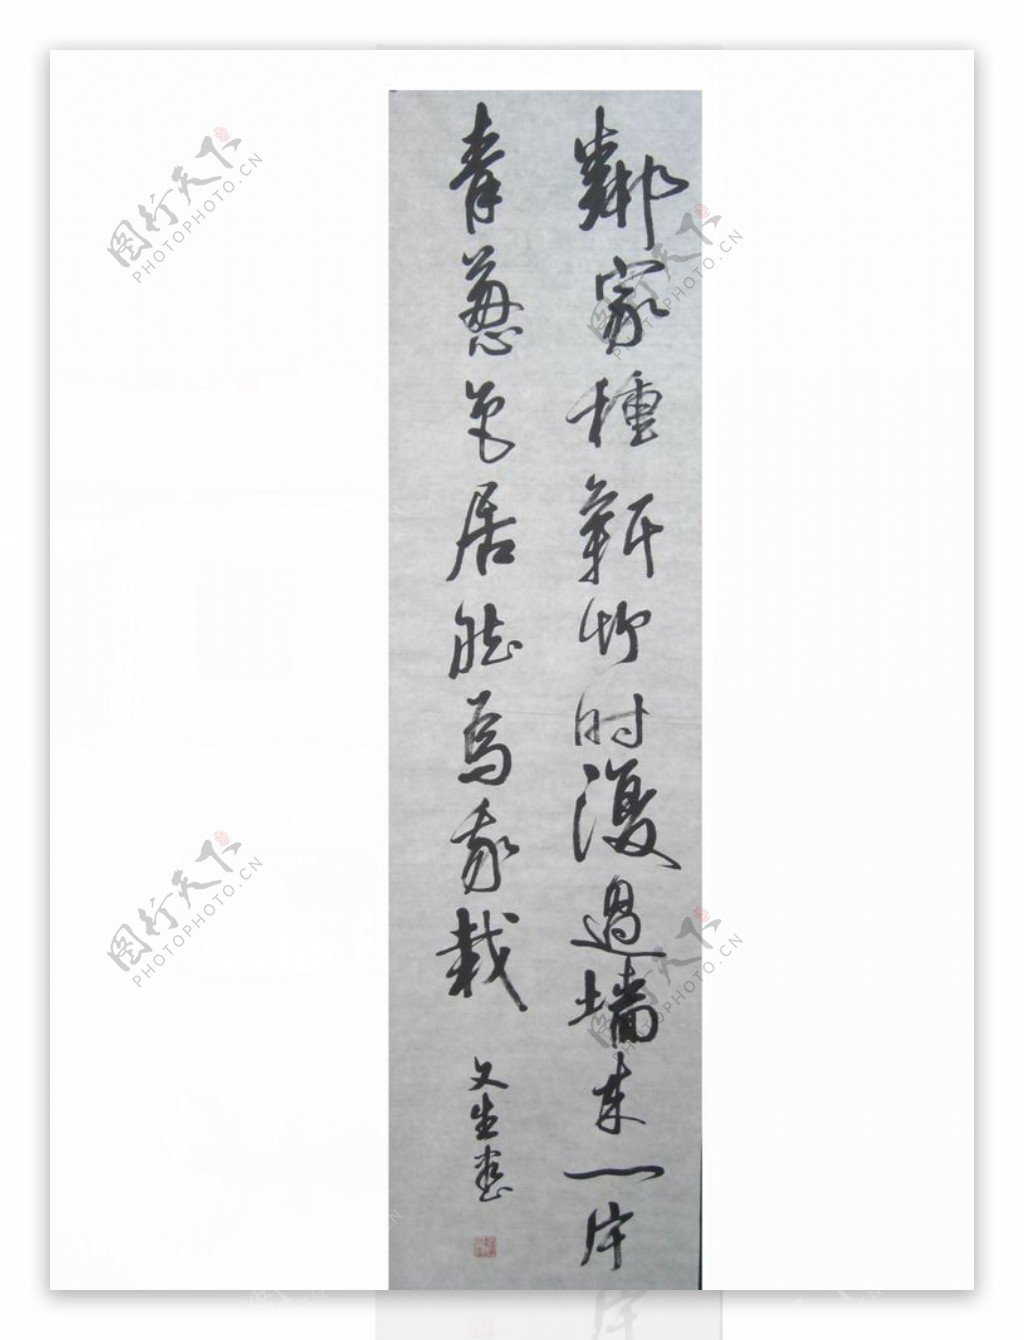 鄰家種新竹时復過墙来一片
青蔥色居然為我栽
文生書
图行天下
PHOTOPHOTO.CN
图行天下
PHOTOPHOTO.CN
图行天下
PHOTOPHOTO.CN
图行天下
PHOTOPHOTO.CN